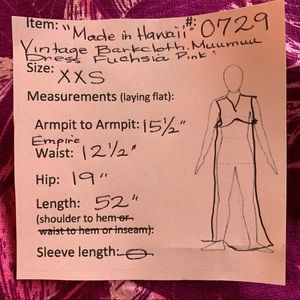 Item: "Made in Hawaii" #: 0729
Vintage Barkcloth Muumuu
Dress Fuchsia Pink
Size: XXS
Measurements (laying flat):
Armpit to Armpit: 15 1/2"
Empire
Waist: 12 1/2"
Hip: 19"
Length: 52"
(shoulder to hem or
waist to hem or inseam):
Sleeve length: 0